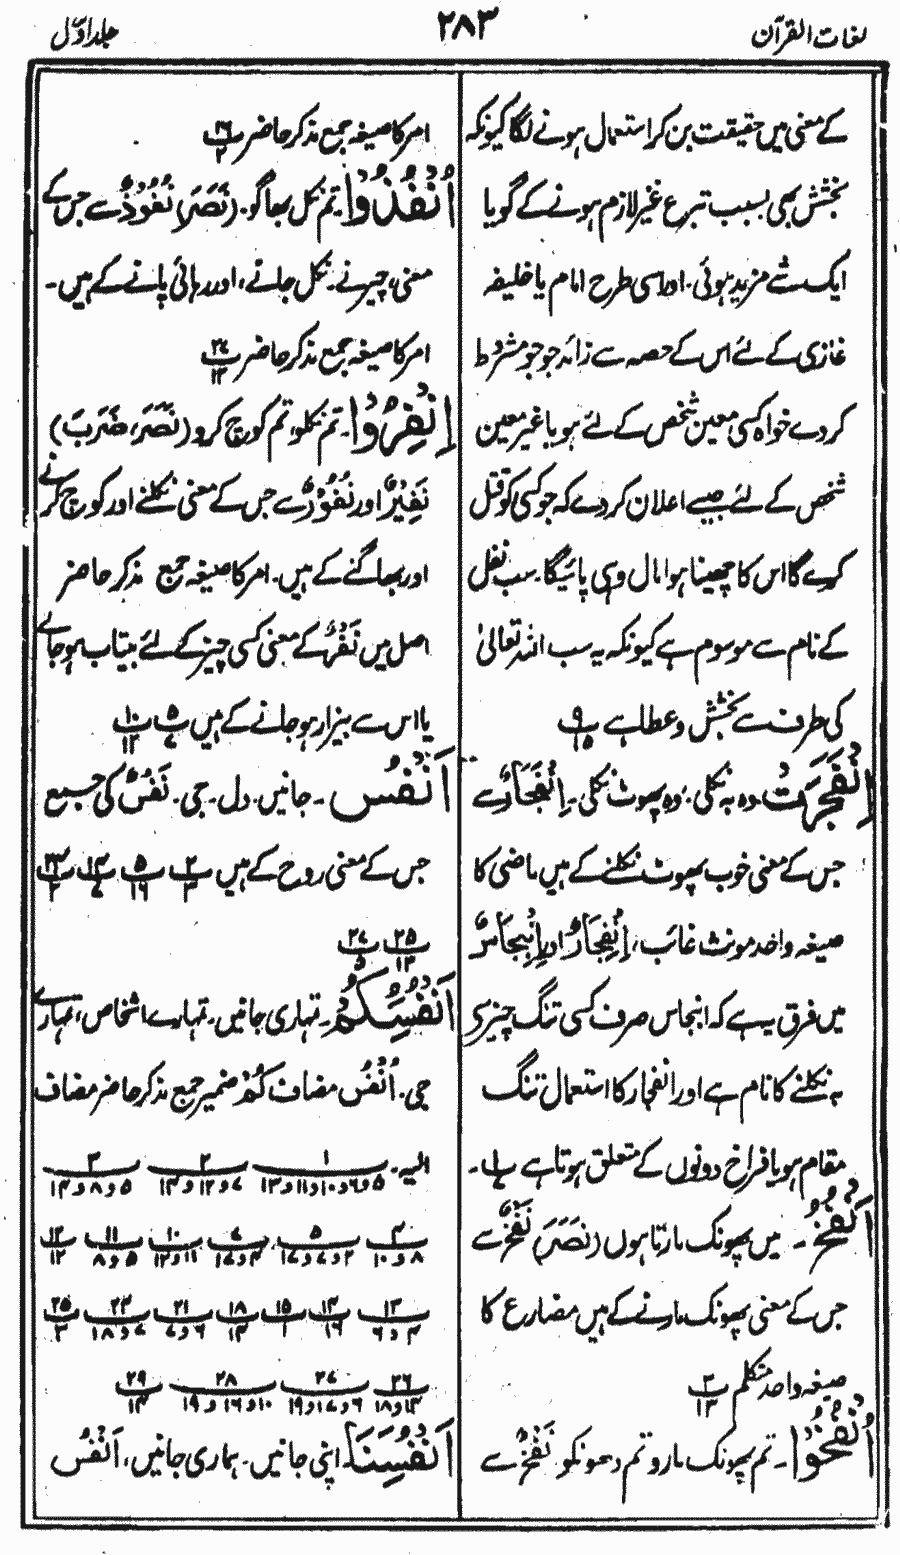 لغات القرآن
۲۸۳
جلد اوّل
کے معنی میں حقیقت بن کر استعمال ہونے لگا کیونکہ
بخشش بھی بسبب تبرع غیر لازم ہونے کے گویا
ایک شے مزید ہوئی۔ اور اسی طرح امام یا خلیفہ
غازی کے لئے اس کے حصہ سے زائد جو جو مشروط
کر دے خواہ کسی معین شخص کے لئے ہو یا غیر معین
شخص کے لئے جیسے اعلان کر دے کہ جو کسی کو قتل
کرے گا اس کا چھینا ہوا مال وہی پائیگا۔ سب نفل
کے نام سے موسوم ہے کیونکہ یہ سب اللہ تعالیٰ
کی طرف سے بخشش و عطا ہے ۹/۱۵
اِنْفَجَرَتْ۔ وہ بہ نکلی۔ وہ پھوٹ نکلی۔ اِنْفِجَارٌ سے
جس کے معنی خوب پھوٹ نکلنے کے ہیں ماضی کا
صیغہ واحد مونث غائب، اِنْفِجَارٌ اور اِنْبِجَاسٌ
میں فرق یہ ہے کہ انبجاس صرف کسی تنگ چیز ہی
سے نکلنے کا نام ہے اور انفجار کا استعمال تنگ
مقام ہو یا فراخ دونوں کے متعلق ہوتا ہے ۱/۷۔
اَنْفُخُ۔ میں پھونک مارتا ہوں (نَصَرَ) نَفْخٌ سے
جس کے معنی پھونک مارنے کے ہیں مضارع کا
صیغہ واحد متکلم ۳/۱۳
اُنْفُخُوْا۔ تم پھونک مارو تم دھونکو نَفْخٌ سے
امر کا صیغہ جمع مذکر حاضر ۱۶/۲
اُنْفُذُوْا۔ تم نکل بھاگو۔ (نَصَرَ) نُفُوْذٌ سے جس کے
معنی، چیرنے۔ نکل جانے، اور رہائی پانے کے ہیں۔
امر کا صیغہ جمع مذکر حاضر ۲۷/۱۲
اِنْفِرُوْا۔ تم نکلو، تم کوچ کرو (نَصَرَ، ضَرَبَ)
نَفِیْرٌ اور نُفُوْرٌ سے جس کے معنی نکلنے اور کوچ کرنے
اور بھاگنے کے ہیں۔ امر کا صیغہ جمع مذکر حاضر
اصل میں نَفْرٌ کے معنی کسی چیز کے لئے بیتاب ہو جانے
یا اس سے بیزار ہو جانے کے ہیں ۵/۷ ۱۰/۱۲
اَنْفُسٌ۔ جانیں۔ دل۔ جی۔ نَفْسٌ کی جمع
جس کے معنی روح کے ہیں ۲/۳ ۵/۱۶ ۱۴/۷ ۲۳/۲
۲۵/۱۲ ۲۷/۵
اَنْفُسِکُمْ۔ تمہاری جانیں۔ تمہارے اشخاص، تمہارے
جی۔ اَنْفُسِ مضاف کُمْ ضمیر جمع مذکر حاضر مضاف
الیہ۔ ۱/۵و۶و۱۰و۱۱و۱۳ ۲/۷و۱۲و۱۴ ۳/۵و۸و۱۴
۴/۸و۱۰ ۵/۲و۷و۱۷ ۷/۴و۱۷ ۱۰/۱۱و۱۲ ۱۱/۵و۸ ۱۲/۱۲
۱۳/۴و۶ ۱۴/۱۶ ۱۵/۱ ۱۸/۱۴ ۲۱/۶و۷ ۲۳/۷و۱۸ ۲۵/۳
۲۶/۱۴و۱۸ ۲۷/۶و۱۷و۱۹ ۲۸/۱۰و۱۶و۱۹ ۲۹/۱۴
اَنْفُسَنَا۔ اپنی جانیں۔ ہماری جانیں، اَنْفُسَ